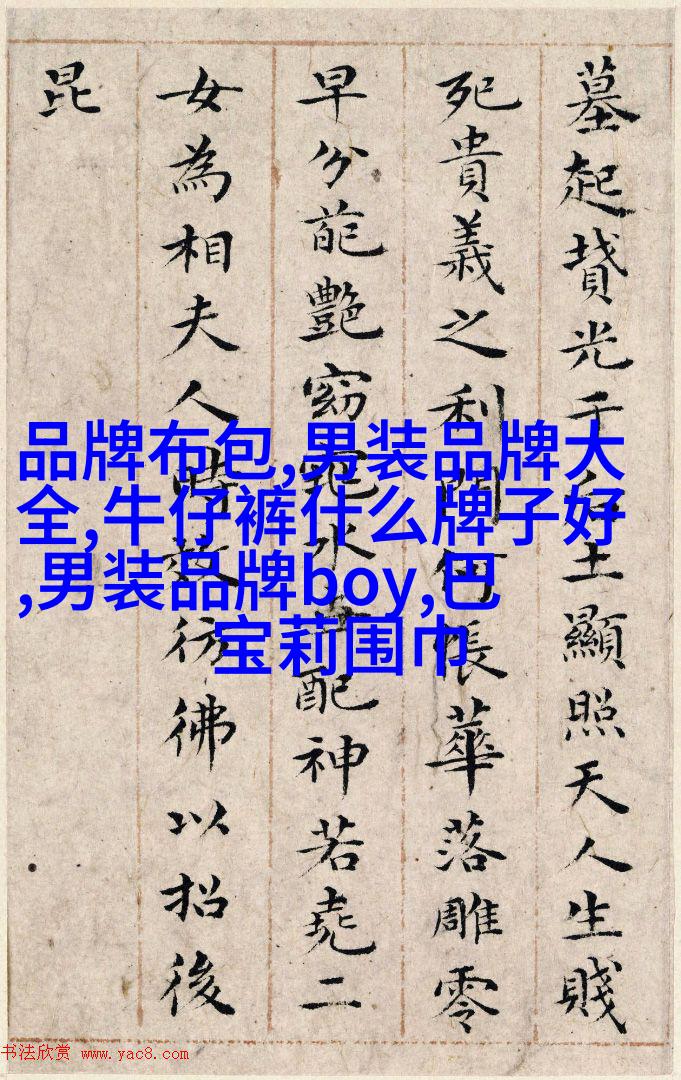 墓起墳光于后土顯照天人生賤
死貴義之利門何悵華落雕零
早分葩艷窈窕永世配神若堯二
女為相夫人時效彷彿以招後
昆
品牌布包,男装品牌大
全,牛仔裤什么牌子好
,男装品牌boy,巴
宝莉围巾
书法欣赏 www.yac8.com